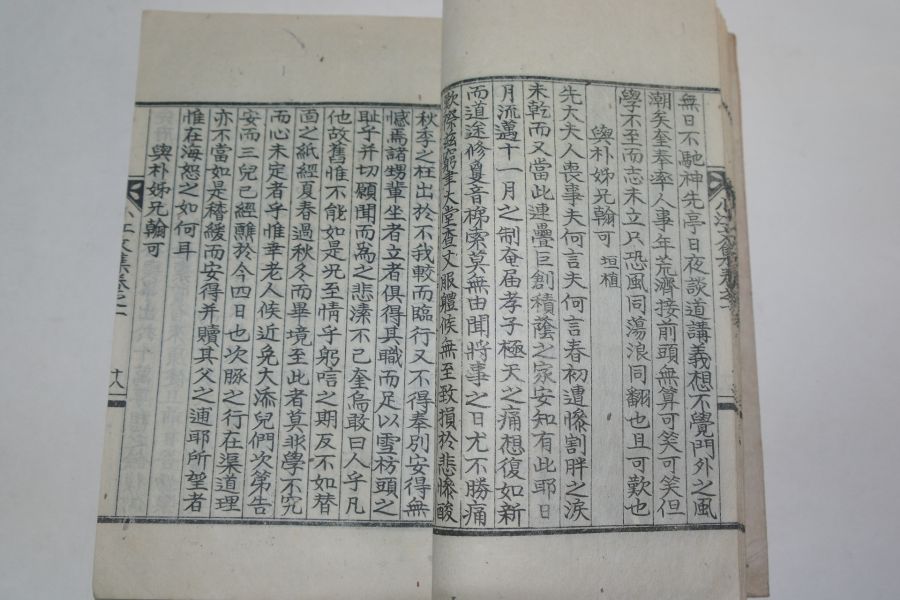 無日不馳神先亭日夜談道講義想不覺門外之風
潮矣奎奉率人事年荒濟接前頭無算可笑可笑但
學不至而志未立只恐風同蕩浪同翻也且可歎也
與朴姊兄翰可 垣植
先大夫人喪事夫何言夫何言春初遭慘割胖之淚
未乾而又當此連疊巨創積蔭之家安知有此耶日
月流邁十一月之制奄届孝子極天之痛想復如新
而道途修敻音梯索莫無由聞將事之日尤不勝痛
歎際玆窮聿大堂查丈服軆候無至致損於悲慘酸
秋季之枉出於不我較而臨行又不得奉別安得無
憾焉諸甥輩坐者立者俱得其職而足以雪枋頭之
耻乎并切願聞而爲之悲溱不已奎烏敢曰人乎凡
他故舊惟不能如是况至情乎躬唁之期反不如替
面之紙經夏春過秋冬而畢境至此者莫非學不究
而心未定者乎惟幸老人候近免大添兒們次第告
安而三兒已經醮於今四日也次豚之行在渠道理
亦不當如是稽緩而安得并贖其父之逋耶所望者
惟在海恕之如何耳
與朴姊兄翰可
十八